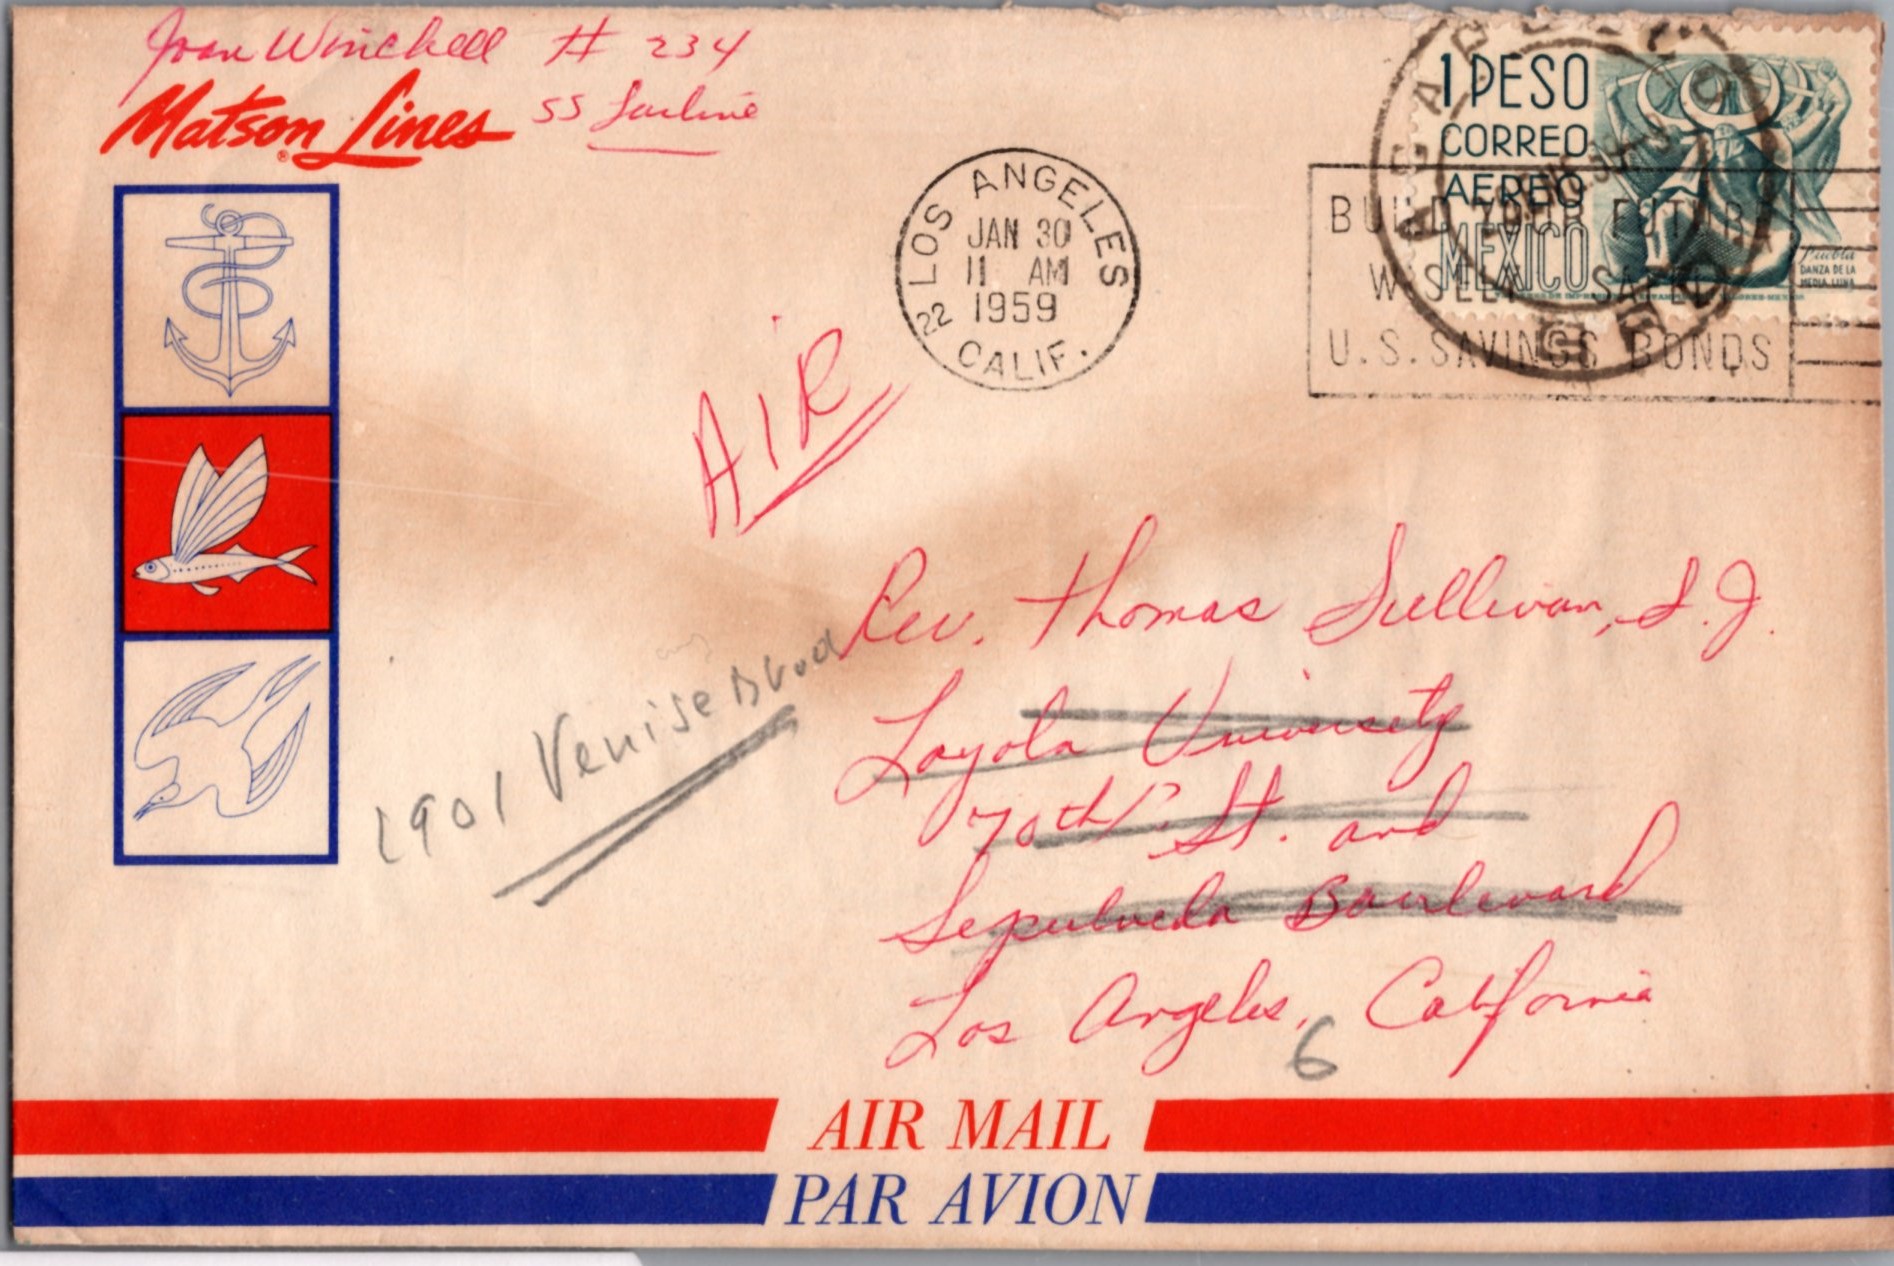 Joan Winchell # 234
Matson Lines
SS Lurline
1 PESO
CORREO
AEREO
MEXICO
Puebla
DANZA DE LA
MEDIA LUNA
ACAPULCO
LOS ANGELES
JAN 30
11 AM
1959
22 CALIF.
BUILD YOUR FUTURE
WISELY SAFELY
U.S. SAVINGS BONDS
AIR
Rev. Thomas Sullivan, S.J.
Loyola University
70th St. and
Sepulveda Boulevard
Los Angeles, California
6
1901 Venise Blvd
AIR MAIL
PAR AVION